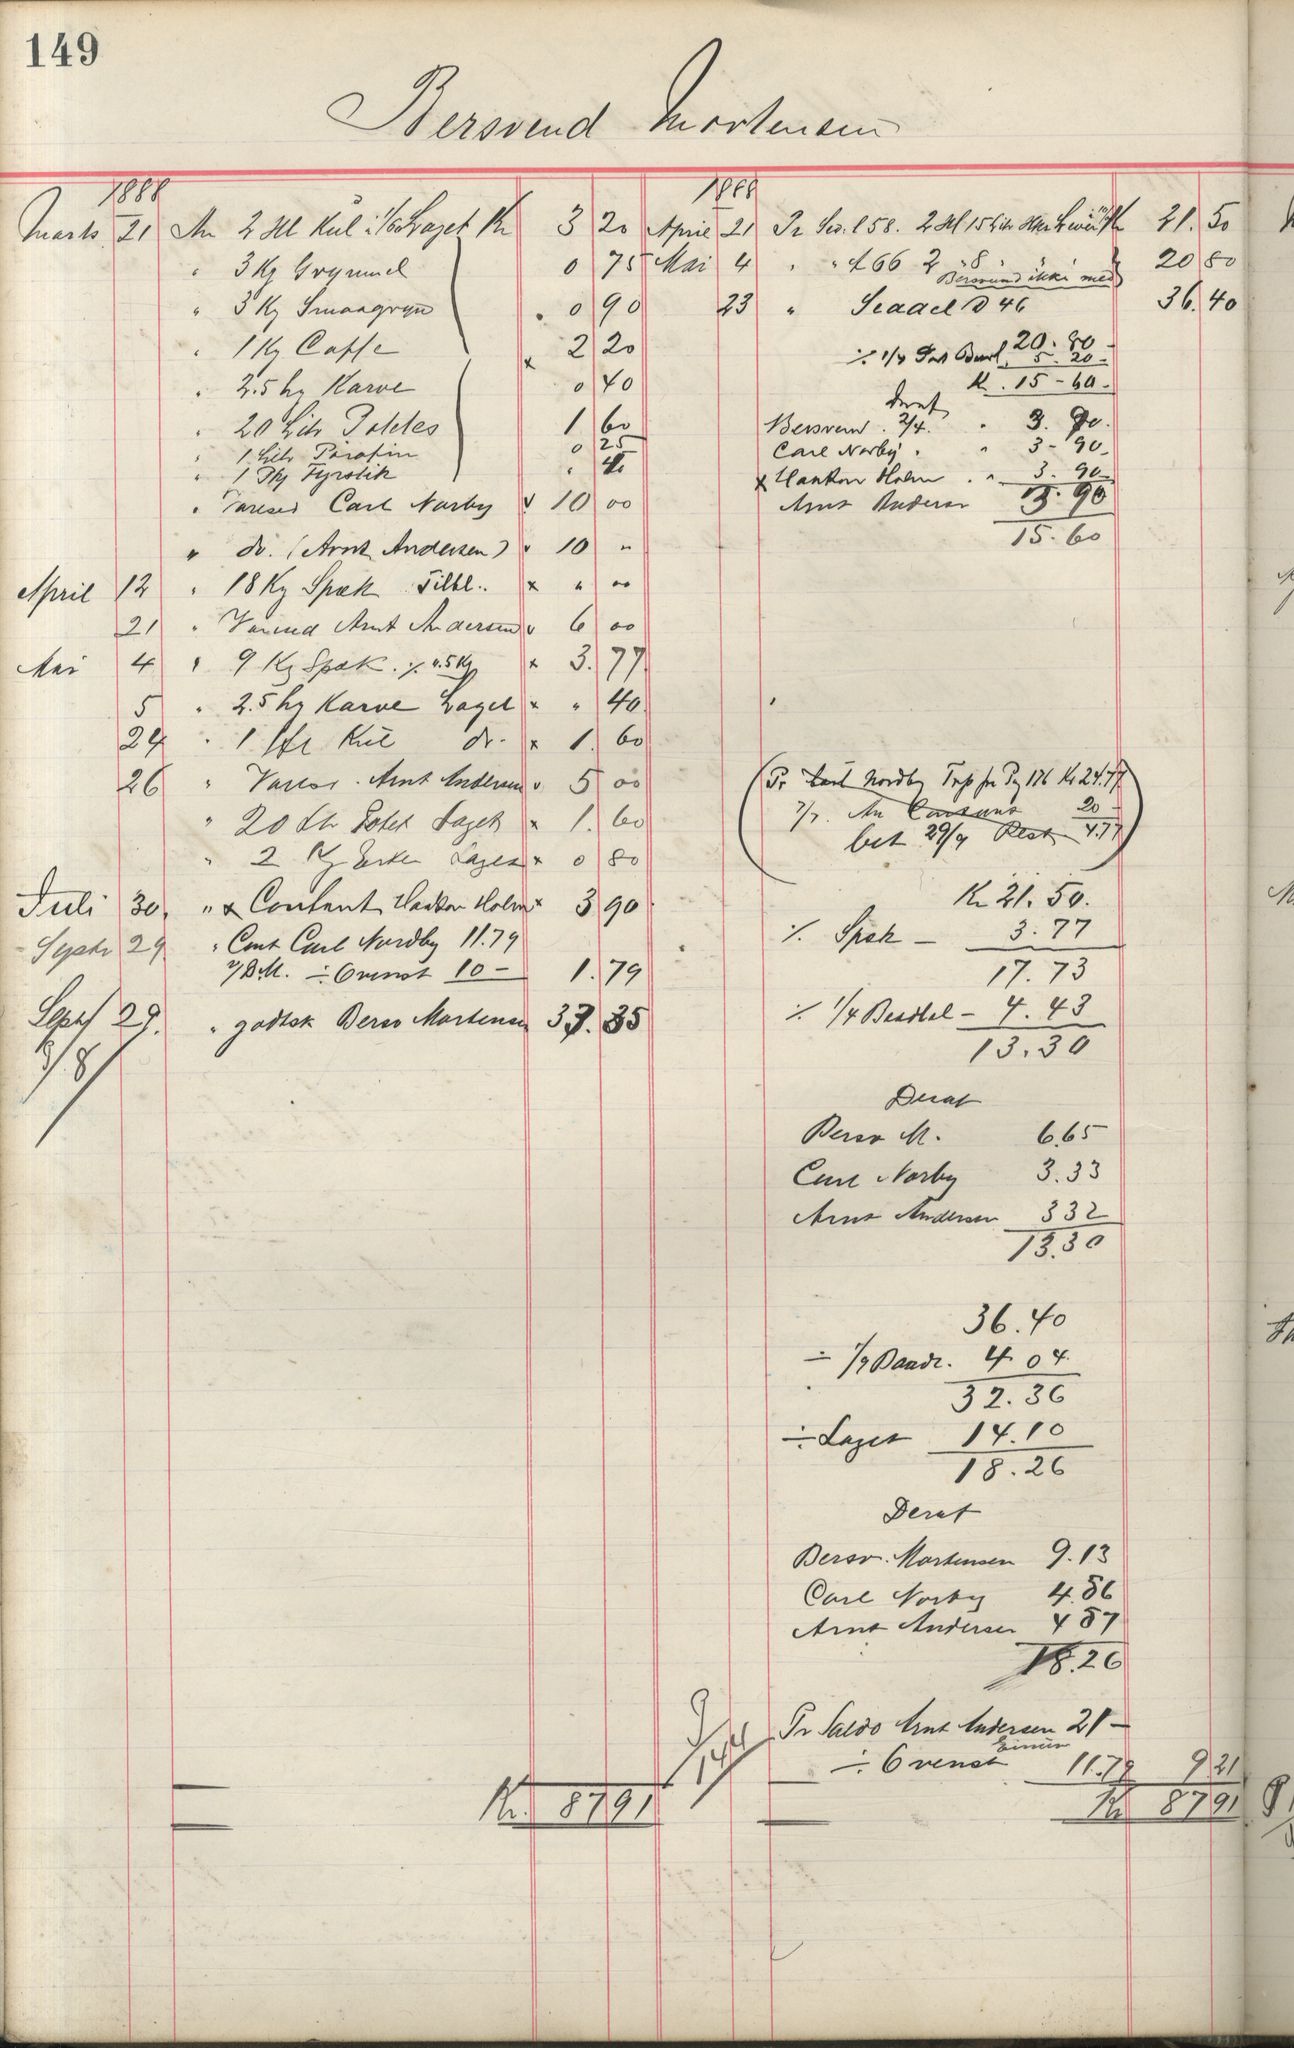 149
Bersvend Mortensen
1888
Marts 21 An 2 Hl Kul i % Laget Kr 3 20
" 3 Kg Grynmel 0 75
" 3 Kg Smaagryn 0 90
" 1 Kg Caffe x 2 20
" 2.5 hg Karve 0 40
" 20 Litr Potetes 1 60
" 1 Litr Parafin 0 25
" 1 Pk Fyrstik "
" Carl Norby v 10 00
" do. (Arnt Andersen) v 10 "
April 12 " 18 Kg Spæk Tilbl.. x " 00
21 " Arnt Andersen v 6 00
Mai 4 " 9 Kg Spæk ٪ 4.5 Kg x 3.77
5 " 2.5 hg Karve Laget x " 40
24 " 1 Hl Kul do. x 1. 60
26 " Arnt Andersen v 5 00
" 20 Ltr Potet Laget x 1. 60
" 2 Kg Erter Laget x 0 80
Juli 30. " x Contant Haakon Holm x 3 90
Septr 29 " Cont Carl Nordby 11.79
÷ Ovenst 10 - 1.79
Sept 29. " godtsk Bersv Mortensen 33. 35
Kr. 87 91
1888
April 21 Pr 58. 2 Hl 15 Litr Kr 21. 50
Mai 4 " " 66 2 " 8 " 20 80
Bersvend ikke med
23 " 46 36. 40
20. 80
٪ 1/4 5. 20
K. 15 - 60
Deraf
Bersvend 2/4. " 3. 90.
Carl Norby " " 3 - 90
x Haakon Holm . " 3. 90
Arnt Anderse 3. 90
15. 60
(Pr Carl Nordby Trp fra Pg 176 Kr 24.77
An Contant 20 -
bet 29/9 Rest 4.77)
Kr 21. 50.
٪ Spæk - 3. 77
17. 73
٪ 1/4 - 4. 43
13. 30
Deraf
Bersv M. 6.65
Carl Norby 3. 33
Arnt Andersen 3 32
13.30
36. 40
÷ 1/9 Baadl. 4 04
32. 36
÷ Laget 14. 10
18. 26
Deraf
Bersv. Mortensen 9. 13
Carl Norby 4. 56
Arnt Andersen 4 57
18.26
Pr Saldo Arnt Andersen 21 -
÷ Ovenst 11.79 9 21
Kr 87 91